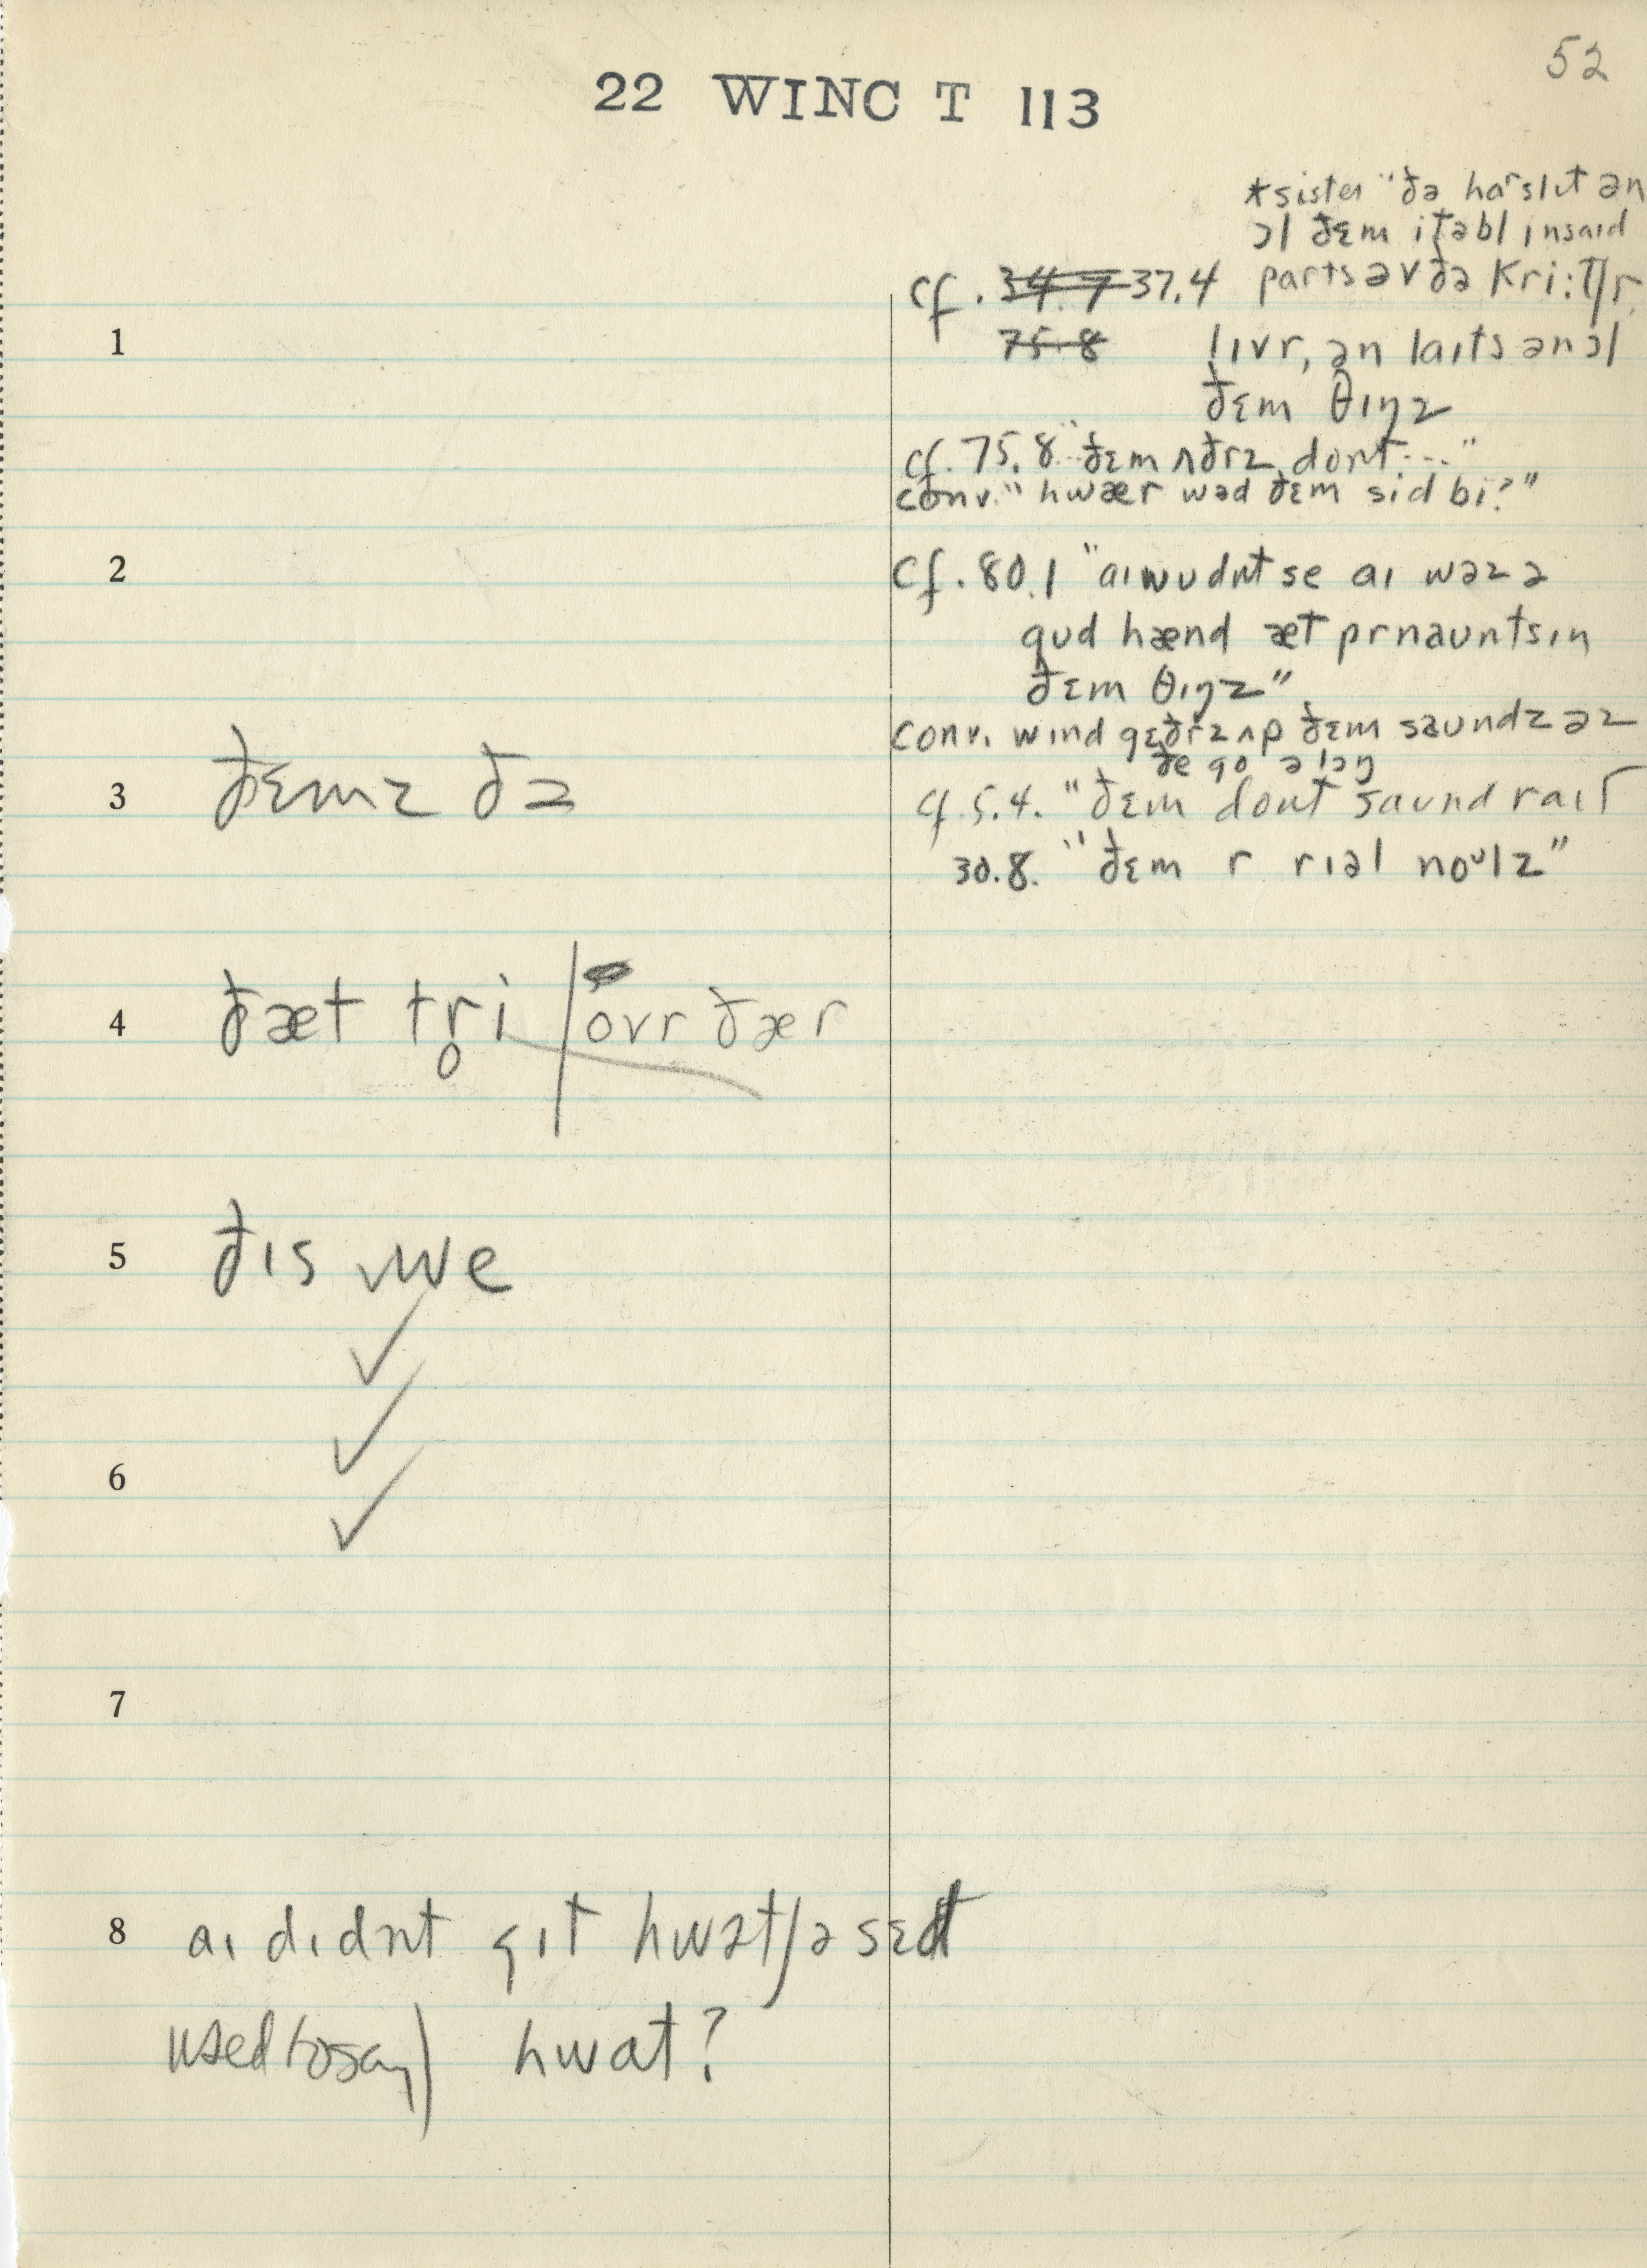 52
22 WINC T 113
*sister "ðə harslɪt ən
ɔl ðɛm itəbl ɪnsaɪd
cf. 34.7 37.4 parts əv ðə kri:tʃr,
1 75.8 lɪvr, ən laɪts ən ɔl
ðɛm θɪŋz
cf. 75.8 "ðɛm ʌðrz dont..."
conv. "hwær wəd ðɛm sid bi?"
2 cf. 80.1 "aɪ wudnt se aɪ wəz ə
gud hænd æt prnauntsɪn
ðɛm θɪŋz"
conv. wɪnd gɛðrz ʌp ðɛm saundz əz
ðe go əlɔŋ
3 ðɛmz ðə cf. 5.4. "ðɛm dont saund raɪt
30.8. "ðɛm r rɪəl noᵘlz"
4 ðæt tr̥i | ovr ðær
5 ðɪs we
✓
✓
6
✓
7
8 aɪ dɪdnt gɪt hwətʃə sɛd
used to say) hwat?